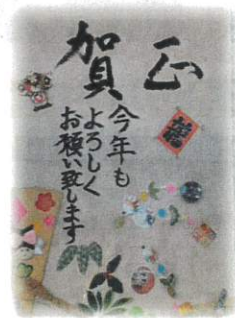 賀正
今年も
よろしく
お願い致します